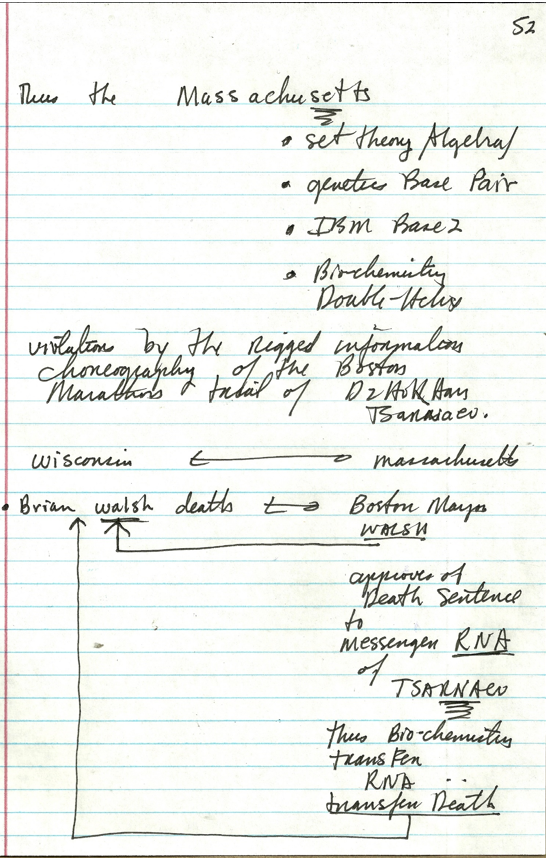 52
Thus the Massachusetts
• set theory Algebra/
• genetics Base Pair
• IBM Base 2
• Bio-chemistry
Double-Helix
violations by the rigged information
choreography of the Boston
Marathons trial of DzHoKHar
Tsarnaev.
Wisconsin ←→ Massachusetts
• Brian Walsh deaths ←→ Boston Mayor
WALSH
approves of
Death Sentence
to
Messenger RNA
of
TSARNAEV
thus Bio-chemistry
transfer
RNA ..
transfer Death